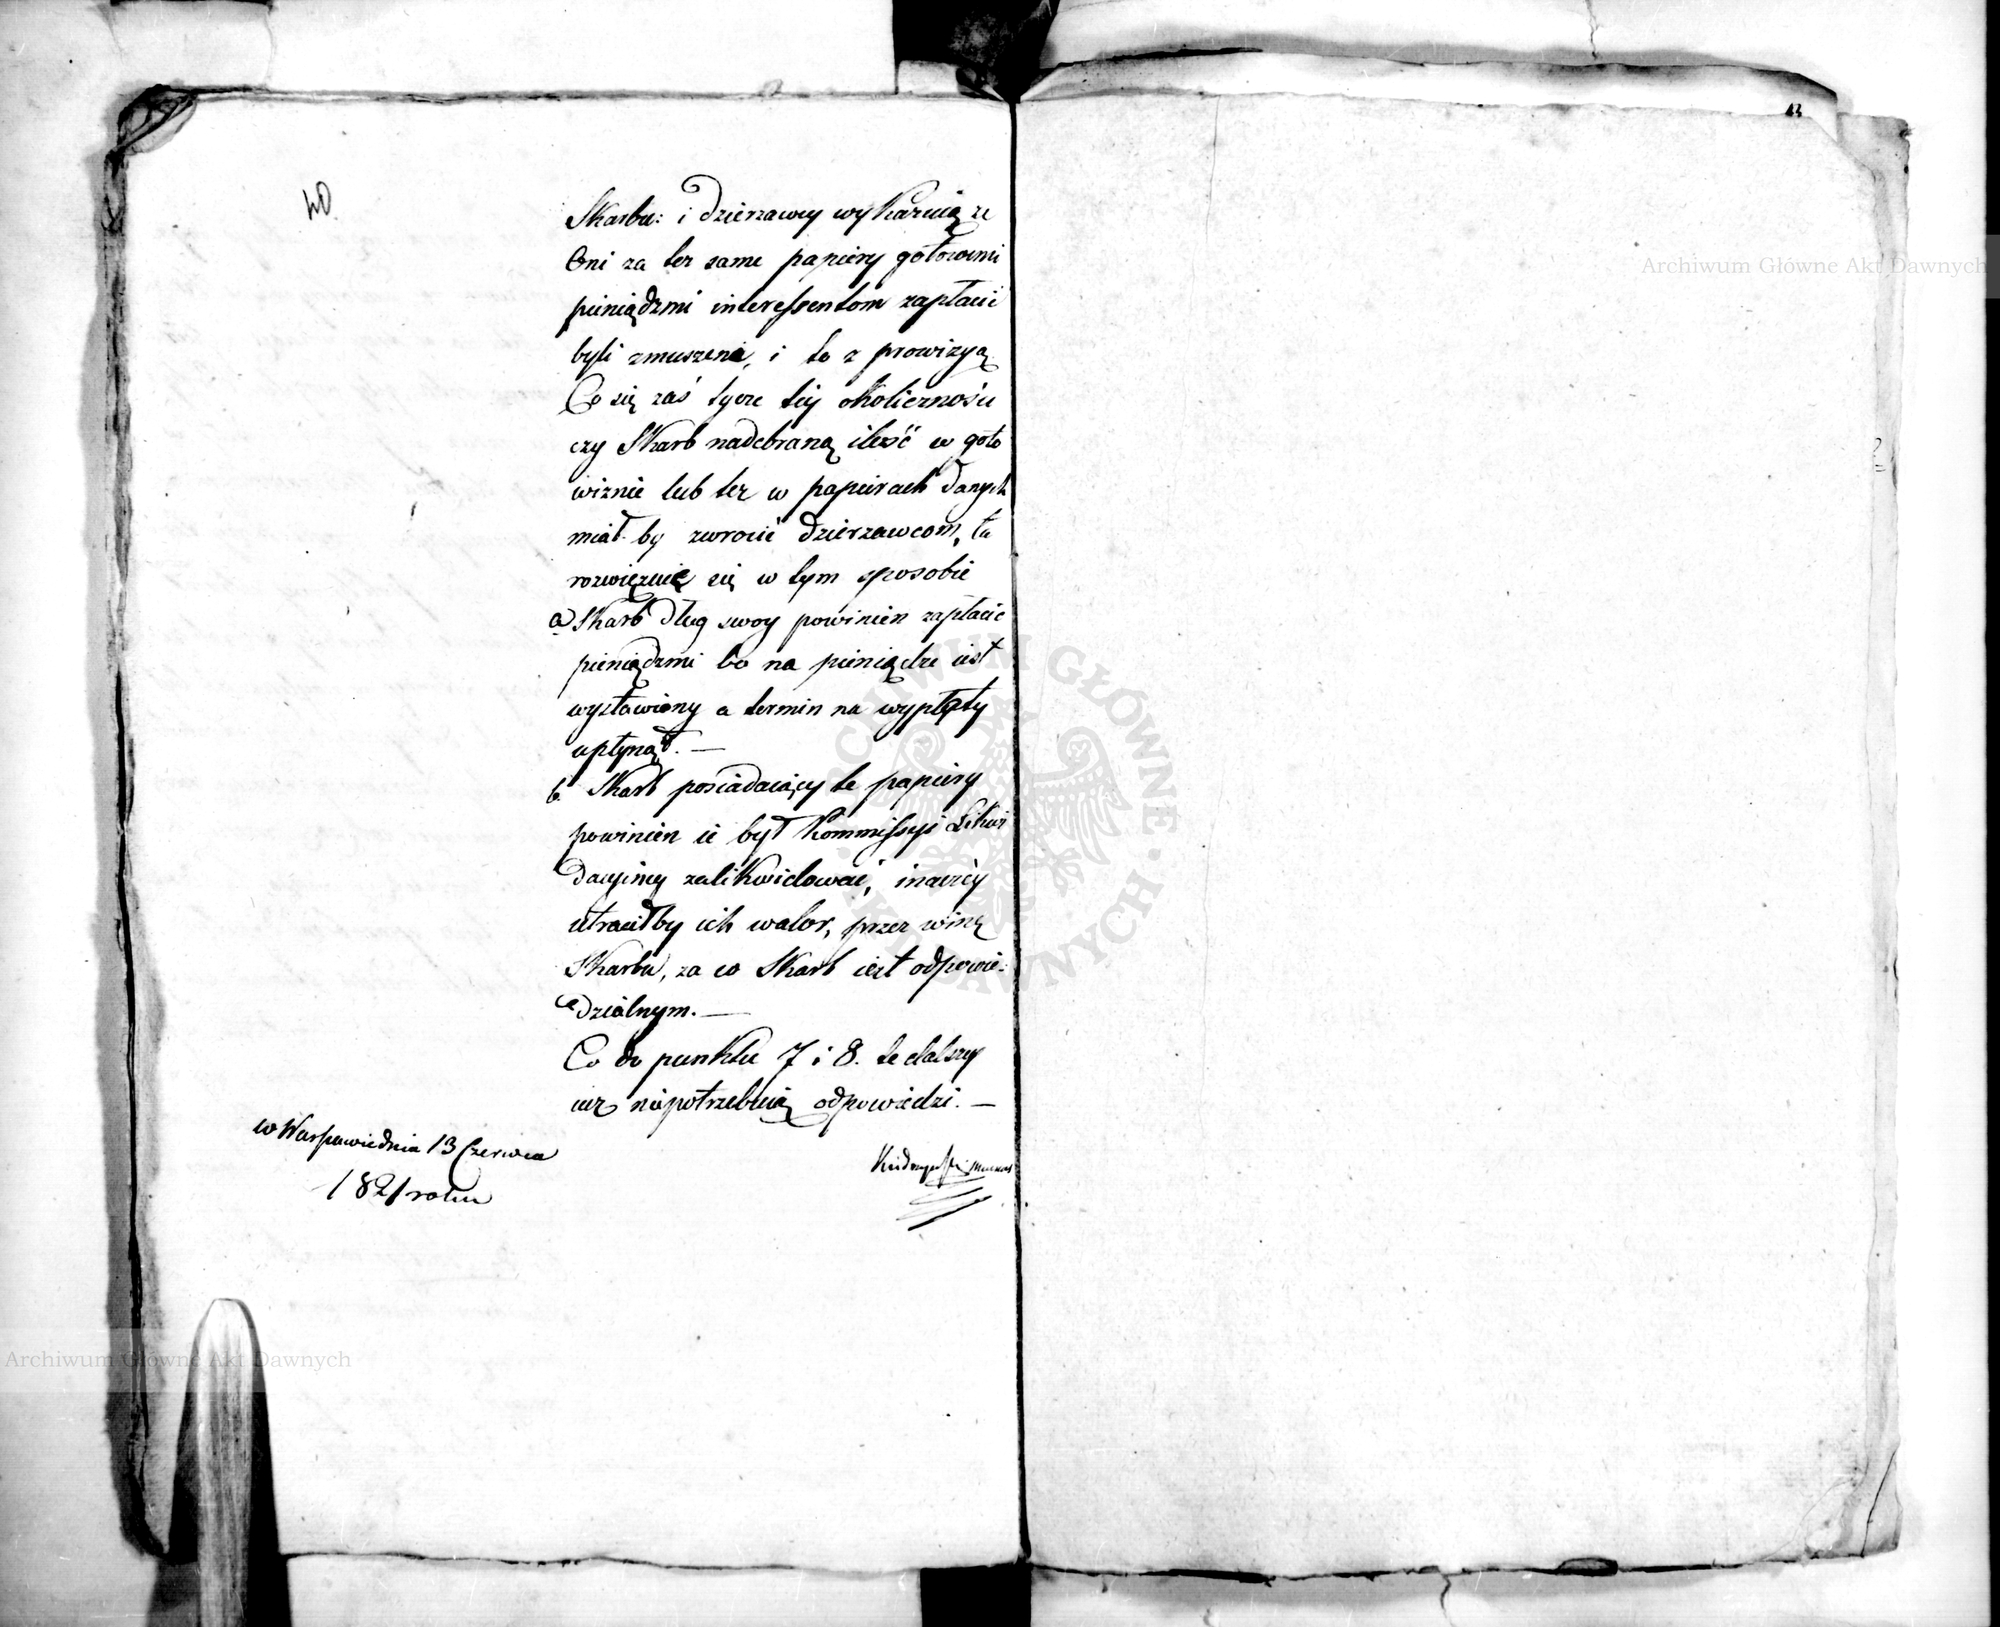 40.
43
Skarbu: i dzierzawcy wykazuią ze
Oni za tez same papiery gotowemi
pieniądzmi interessentom zapłacić
byli zmuszeni, i to z prowizyą
Co się zaś tycze tey okoliczności
czy Skarb nadebraną ilość w goto
wiznie lub tez w papierach danych
miał by zwrocić dzierzawcom, ta
rozwięzuię się w tym sposobie
a Skarb dług swoy powinien zapłacic
pieniądzmi bo na pieniądze iest
wystawiony a termin na wypłaty
upłynął. —
b. Skarb posiadaiący te papiery
powinien ie był Kommissyi Likwi
dacyiney zalikwidować, inaczey
utraciłby ich walor, przez winę
Skarbu, za co Skarb iest odpowie=
dzialnym. —
Co do punktu 7 i 8. te dalszey
iuz niepotrzebuią odpowiedzi. —
w Warszawie dnia 13 Czerwca
1821 roku
Archiwum Główne Akt Dawnych
Archiwum Główne Akt Dawnych
ARCHIWUM GŁÓWNE AKT DAWNYCH